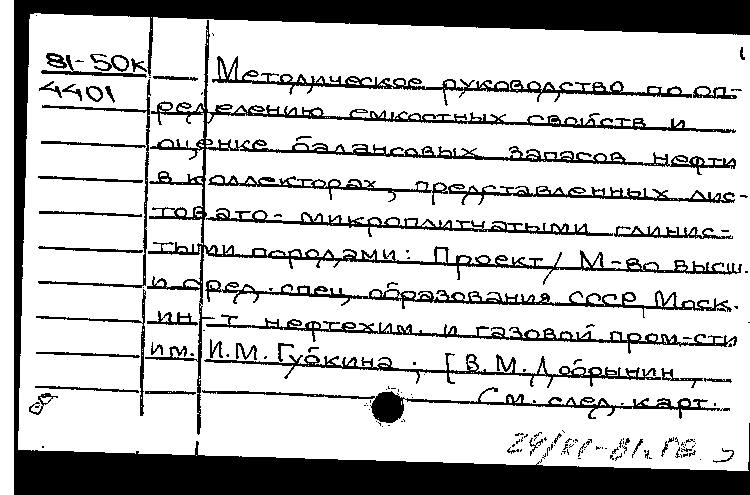 81-50к
4401
Методическое руководство по оп-
ределению емкостных свойств и
оценке балансовых запасов нефти
в коллекторах, представленных лис-
товато-микроплитчатыми глинис-
тыми породами: Проект / М-во высш.
и сред. спец. образования СССР, Моск.
ин-т нефтехим. и газовой пром-сти
им. И.М. Губкина ; [В.М. Добрынин,
См. след. карт.